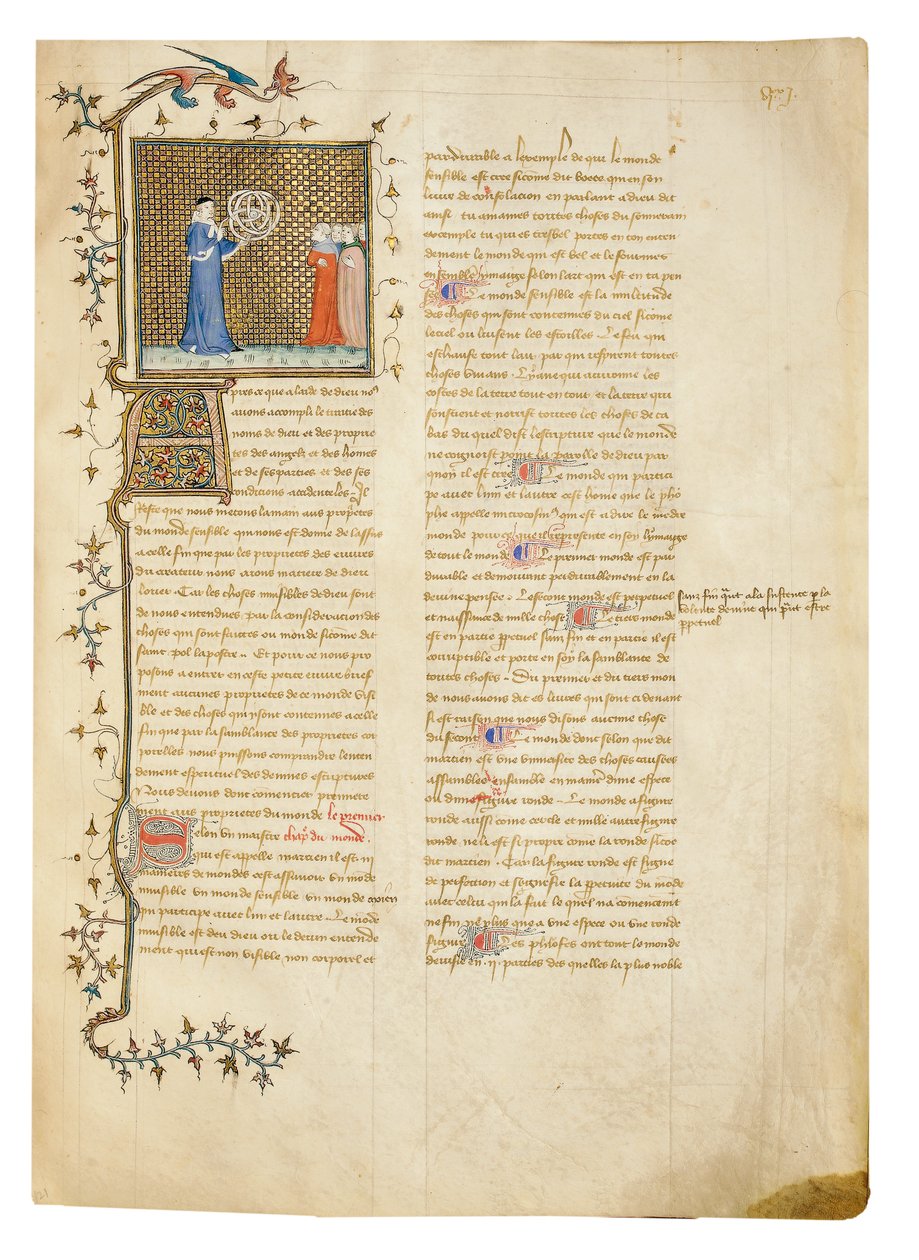 pres ce que a laide de dieu no9
auons accompli le traitie des
noms de dieu et des proprie
tes des angels et des homes
et de ses parties et des ses
condicions accidenteles . Il
reste que nous metons la main aus propetes
du monde sensible qui nous est donne de lassus
a celle fin que par les proprietes des euures
du createur nous aions matiere de dieu
louer . Car les choses inuisibles de dieu sont
de nous entendues par la consideracion des
choses qui sont faictes ou monde sicome dit
saint pol lapostre . Et pour ce nous pro
posons a entrer en ceste petite euure brief
ment aucunes proprietes de ce monde visi
ble et des choses qui y sont contenues a celle
fin que par la samblance des proprietes cor
porelles nous puissons comprandre lenten
dement esperituel des deuines escriptures
Nous deuons dont comencier premiere
ment aus proprietes du monde le premier
Selon vn maistre chap. du monde.
qui est appelle marcien il est .iij.
manieres de mondes cest assauoir vn mode
inuisible vn monde sensible vn monde moien
qui participe auec lun et lautre . Le mode
inuisible est deu dieu ou le deuin entende
ment qui est non visible, non corporel et
pardurable a lexemple de qui le monde
sensible est cree sicome dit boece qui en son
liure de consolacion en parlant a dieu dit
ainsi tu amaines toutes choses du souuerain
exemple tu qui es tresbel portes en ton enten
dement le monde qui est bel et le fourmes
ensemble lymaige selon lart qui est en ta pen
see Le monde sensible est la multitude
des choses qui sont contenues du ciel sicome
le ciel ou luisent les estoilles . Le feu qui
eschaufe tout lair par qui respirent toutes
choses viuans . Lyaue qui auironne les
costes de la terre tout en tout et la terre qui
soustient et norist toutes les choses de ca
bas du quel dist lescripture que le monde
ne cognoist point la parolle de dieu par
quoy il est cree Le monde qui partici
pe auec lun et lautre cest home que le phō
phe appelle microcosm9 qui est a dire le mēdre
monde pour ce que il represente en soy lymaige
de tout le monde Le premier monde est par
durable et demourant perdurablement en la
deuine pensee . Le secont monde est perpetuel
et naissance de mille chose Le tiers monde
est en partie ppetuel sanz fin et en partie il est
corruptible et porte en soy la samblance de
toutes choses . Du premier et du tiers mon
de nous auons dit es liures qui sont ci deuant
si est raison que nous disons aucune chose
du secont Le monde donc selon que dit
marcien est vne vniuersite des choses causees
assamblees ensamble en maniere dune espece
ou dune figure ronde . Le monde a figure
ronde aussi come cercle et nulle autre figure
ronde ne li est si propre come la ronde sicōe
dit marcien . Car la figure ronde est signe
de perfection et segnefie la ppetuite du mōde
auec celui qui la fait le quel na comencemt
ne fin ne plus que a vne espece ou vne ronde
figure Les philosofes ont tout le monde
deuisie en .ij. parties des quelles la plus noble
sanz fin qut a la sustence p la
volente deuine qui puet estre
ppetuel
121